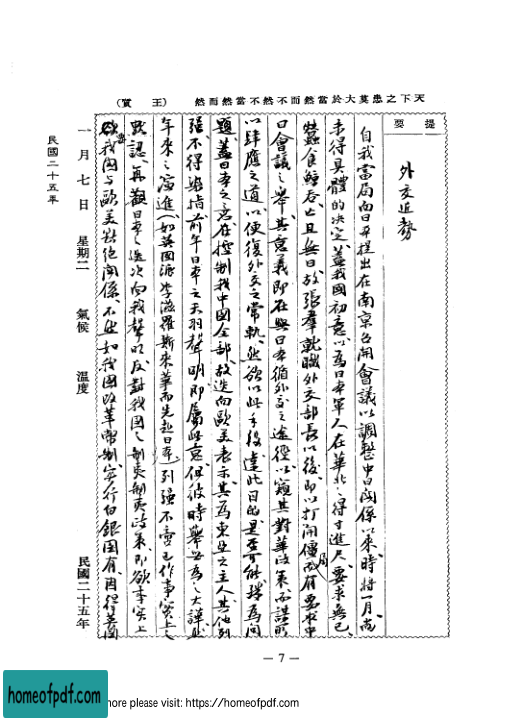 天下之患莫大於當然而不然不當然而然 (王質)
提要
外交近勢
自我當局向日本提出在南京召開會議以調整中日關係以來、時將一月、尚
未得具體的決定、蓋我國初意以為日本軍人在華北之得寸進尺、要求無已、
蠶食鯨吞亡且無日、故張羣就職外交部長以後、即以打開僵局而有要求中
日會議之舉、其意義即在與日本循外交之途徑、以窺其對華政策、而謀所
以肆應之道、以便復外交之常軌、然欲以此手段達此目的、是否可能、殊為問
題、蓋日本之志在控制我中國全部、故迭向歐美表示其為東亞之主人、其他列
強不得染指、前年日本之天羽聲明、即屬此意、但彼時舉世為之大譁、
年來之演進(如英國派李滋羅斯來華而先赴日本)列強不啻已作事實上之
默認、再觀日本之迭次向我聲明反對我國之制夷制夷政策、即欲事實上
欲我國與歐美斷絕關係、不然、如我國改革幣制、實行白銀國有、因得英國
一月七日 星期二 氣候 溫度 民國二十五年
民國二十五年
— 7 —
homeofpdf.com
more please visit: https://homeofpdf.com